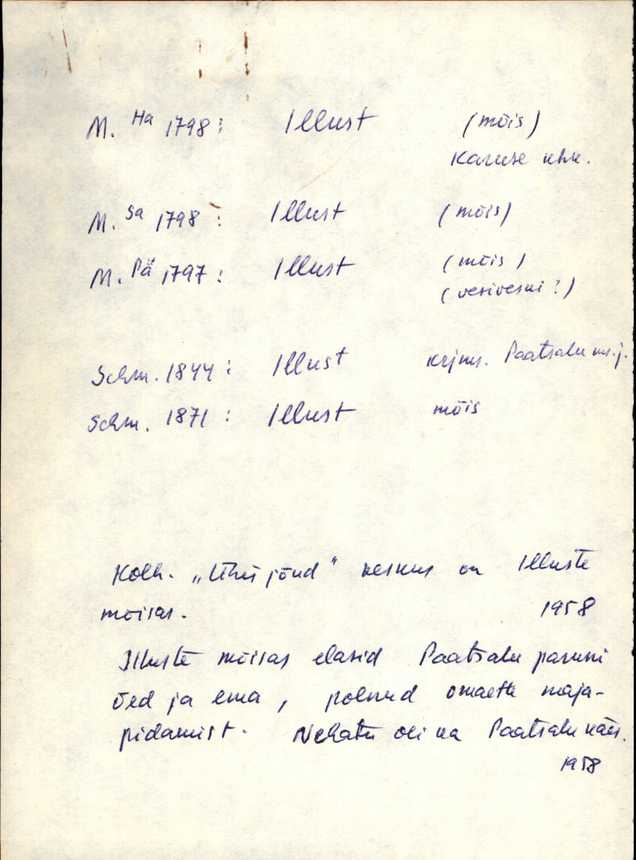 M. Ha 1798: Illust (mõis)
Karuse khk.
M. Sa 1798: Illust (mõis)
M. Pä 1797: Illust (mõis)
(vesiveski?)
Schm. 1844: Illust krjms. Paatsalu ms. j.
Schm. 1871: Illust mõis
Kolh. „Ühisjõud" keskus on Illuste
mõisas. 1958
Illuste mõisas elasid Paatsalu paruni
õed ja ema, polnud omaette maja-
pidamist. Nehatu oli ka Paatsalu käes.
1958